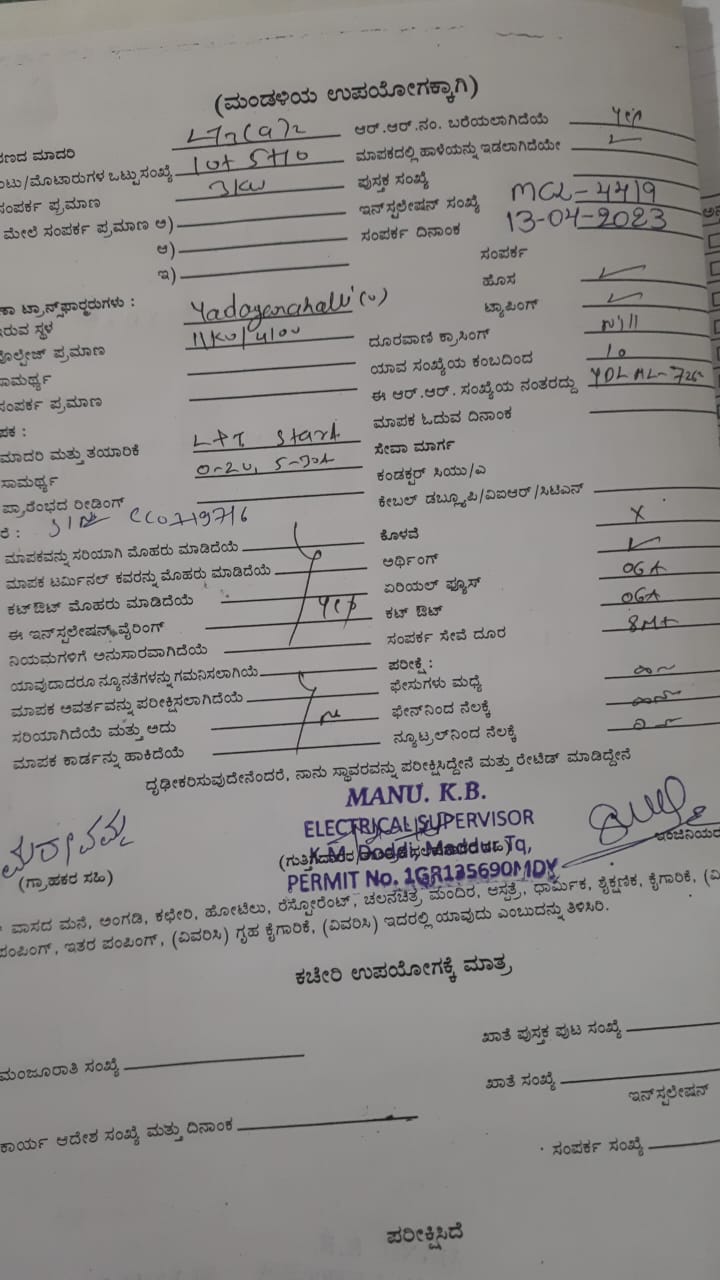 (ಮಂಡಳಿಯ ಉಪಯೋಗಕ್ಕಾಗಿ)
ರಣದ ಮಾದರಿ LT2(a)2 ಆರ್.ಆರ್.ನಂ. ಬರೆಯಲಾಗಿದೆಯೆ yes
ಂಟು/ಮೋಟಾರುಗಳ ಒಟ್ಟುಸಂಖ್ಯೆ ಮಾಪಕದಲ್ಲಿ ಹಾಳೆಯನ್ನು ಇಡಲಾಗಿದೆಯೇ ✓
ಸಂಪರ್ಕ ಪ್ರಮಾಣ 3KW ಪುಸ್ತಕ ಸಂಖ್ಯೆ
ಮೇಲೆ ಸಂಪರ್ಕ ಪ್ರಮಾಣ ಅ) ಇನ್‌ಸ್ಟಲೇಷನ್ ಸಂಖ್ಯೆ MCL-4419
ಆ) ಸಂಪರ್ಕ ದಿನಾಂಕ 13-04-2023
ಇ) ಸಂಪರ್ಕ
ಕಾ ಟ್ರಾನ್ಸ್‌ಫಾರ್‍ಮರುಗಳು : ಹೊಸ ✓
ಇರುವ ಸ್ಥಳ Yadaganahalli (v) ಟ್ಯಾಪಿಂಗ್ ✓
ವೊಲ್ಟೇಜ್ ಪ್ರಮಾಣ 11KV/400 ದೂರವಾಣಿ ಕ್ರಾಸಿಂಗ್ Nill
ಸಾಮರ್ಥ್ಯ ಯಾವ ಸಂಖ್ಯೆಯ ಕಂಬದಿಂದ 10
ಸಂಪರ್ಕ ಪ್ರಮಾಣ ಈ ಆರ್.ಆರ್. ಸಂಖ್ಯೆಯ ನಂತರದ್ದು
ಪಕ : ಮಾಪಕ ಓದುವ ದಿನಾಂಕ
ಮಾದರಿ ಮತ್ತು ತಯಾರಿಕೆ L&T ಸೇವಾ ಮಾರ್ಗ
ಸಾಮರ್ಥ್ಯ ಕಂಡಕ್ಟರ್ ಸಿಯು/ಎ
ಪ್ರಾರಂಭದ ರೀಡಿಂಗ್ ಕೇಬಲ್ ಡಬ್ಲ್ಯೂಪಿ/ವಿಐಆರ್/ಸಿಟಿಎನ್
ರೆ : CC0719716 ಕೊಳವೆ X
ಮಾಪಕವನ್ನು ಸರಿಯಾಗಿ ಮೊಹರು ಮಾಡಿದೆಯೆ ಅರ್ಥಿಂಗ್ ✓
ಮಾಪಕ ಟರ್ಮಿನಲ್ ಕವರನ್ನು ಮೊಹರು ಮಾಡಿದೆಯೆ ಏರಿಯಲ್ ಫ್ಯೂಸ್ OGA
ಕಟ್‌ಔಟ್ ಮೊಹರು ಮಾಡಿದೆಯೆ ಕಟ್ ಔಟ್ OGA
ಈ ಇನ್‌ಸ್ಟಲೇಷನ್ ವೈರಿಂಗ್ yes ಸಂಪರ್ಕ ಸೇವೆ ದೂರ 8Mt
ನಿಯಮಗಳಿಗೆ ಅನುಸಾರವಾಗಿದೆಯೆ ಪರೀಕ್ಷೆ :
ಯಾವುದಾದರೂ ನ್ಯೂನತೆಗಳನ್ನು ಗಮನಿಸಲಾಗಿಯೆ ಫೇಸುಗಳು ಮಧ್ಯೆ
ಮಾಪಕ ಅವರ್ತವನ್ನು ಪರೀಕ್ಷಿಸಲಾಗಿದೆಯೆ ಫೇಸ್‌ನಿಂದ ನೆಲಕ್ಕೆ
ಸರಿಯಾಗಿದೆಯೆ ಮತ್ತು ಅದು ನ್ಯೂಟ್ರಲ್‌ನಿಂದ ನೆಲಕ್ಕೆ
ಮಾಪಕ ಕಾರ್ಡನ್ನು ಹಾಕಿದೆಯೆ
ದೃಢೀಕರಿಸುವುದೇನೆಂದರೆ, ನಾನು ಸ್ಥಾವರವನ್ನು ಪರೀಕ್ಷಿಸಿದ್ದೇನೆ ಮತ್ತು ರೇಟೆಡ್ ಮಾಡಿದ್ದೇನೆ
MANU. K.B.
ELECTRICAL SUPERVISOR
K.M. Doddi, Maddur Tq,
PERMIT No. 1GR135690MDY
(ಗ್ರಾಹಕರ ಸಹಿ) ಇಂಜಿನಿಯರ
ವಾಸದ ಮನೆ, ಅಂಗಡಿ, ಕಛೇರಿ, ಹೋಟೆಲು, ರೆಸ್ಟೋರೆಂಟ್, ಚಲನಚಿತ್ರ ಮಂದಿರ, ಆಸ್ಪತ್ರೆ, ಧಾರ್ಮಿಕ, ಶೈಕ್ಷಣಿಕ, ಕೈಗಾರಿಕೆ, (ವಿ
ಪಂಪಿಂಗ್, ಇತರ ಪಂಪಿಂಗ್, (ವಿವರಿಸಿ) ಗೃಹ ಕೈಗಾರಿಕೆ, (ವಿವರಿಸಿ) ಇದರಲ್ಲಿ ಯಾವುದು ಎಂಬುದನ್ನು ತಿಳಿಸಿರಿ.
ಕಚೇರಿ ಉಪಯೋಗಕ್ಕೆ ಮಾತ್ರ
ಖಾತೆ ಪುಸ್ತಕ ಪುಟ ಸಂಖ್ಯೆ
ಮಂಜೂರಾತಿ ಸಂಖ್ಯೆ ಖಾತೆ ಸಂಖ್ಯೆ
ಇನ್‌ಸ್ಟಲೇಷನ್
ಕಾರ್ಯ ಆದೇಶ ಸಂಖ್ಯೆ ಮತ್ತು ದಿನಾಂಕ ಸಂಪರ್ಕ ಸಂಖ್ಯೆ
ಪರೀಕ್ಷಿಸಿದೆ